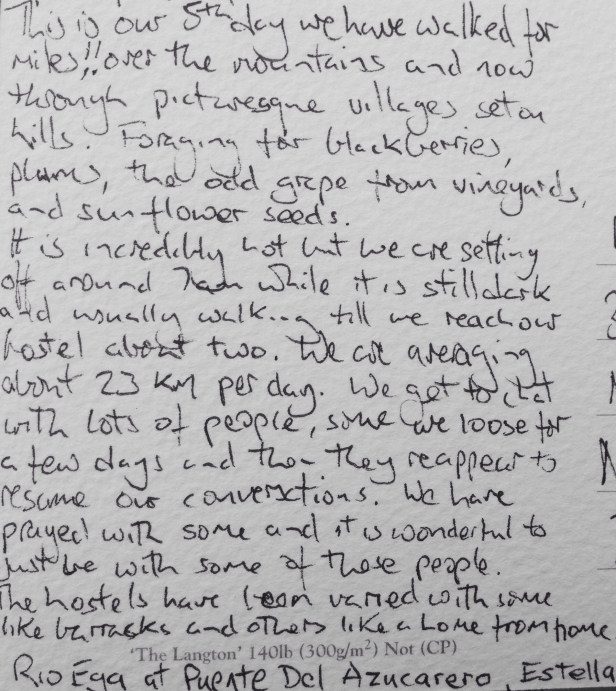 This is our 5th day we have walked for
miles!! over the mountains and now
through picturesque villages set on
hills. Foraging for blackberries,
plums, the odd grape from vineyards,
and sunflower seeds.
It is incredibly hot but we are setting
off around 7am while it is still dark
and usually walk...g till we reach our
hostel about two. We are averaging
about 23 KM per day. We get to chat
with lots of people, some we loose for
a few days and then they reappear to
resume our conversations. We have
prayed with some and it is wonderful to
just be with some of these people.
The hostels have been varied with some
like barrasks and others like a home from home
'The Langton' 140lb (300g/m²) Not (CP)
Rio Ega at Puente Del Azucarero, Estella